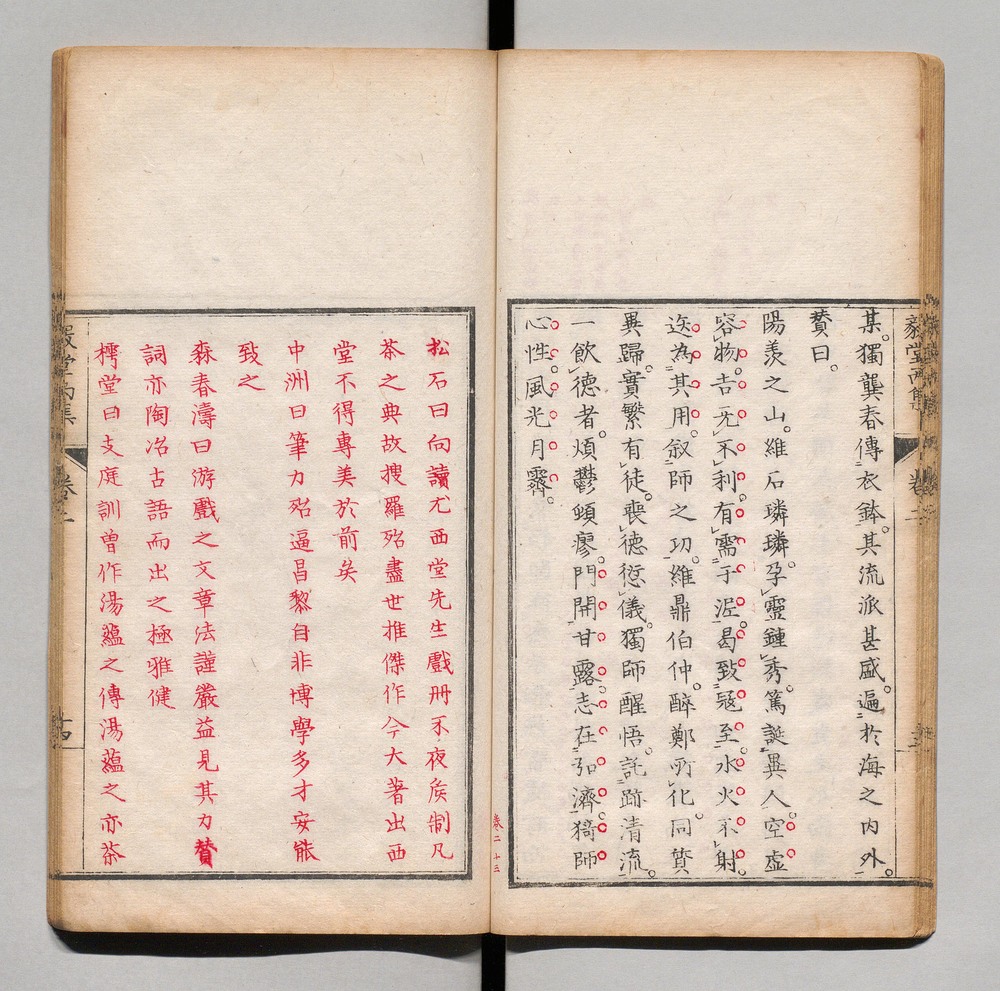 某獨龔春傳衣鉢。其流派甚盛。遍於海之內外。
贊曰。
陽羨之山。維石璘璘。孕靈鍾秀。篤誕異人。空虛
容物。吉无不利。有需于泥。曷致冦至。水火不射。
迭為其用。叙師之功。維鼎伯仲。醉鄭所化。同贊
異歸。實繁有徒。喪德愆儀。獨師醒悟。託跡清流。
一飲德者。煩鬱頓瘳。門開甘露。志在弘濟。猗師
心性。風光月霽。
毅堂丙集
卷二
卷二 十三
松石曰向讀尤西堂先生戲册不夜矦制凡
茶之典故搜羅殆盡世推傑作今大著出西
堂不得專美於前矣
中洲曰筆力殆逼昌黎自非博學多才安能
致之
森春濤曰游戲之文章法謹嚴益見其力贊
詞亦陶冶古語而出之極雅健
樗堂曰支庭訓曾作湯蘊之傳湯蘊之亦茶
毅堂丙集
卷二
十四